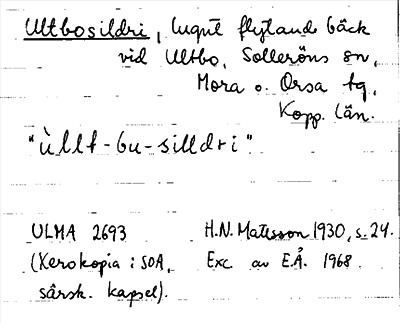 Ultbosildri, lugnt flytande bäck
vid Ultbo, Solleröns sn,
Mora o. Orsa tg,
Kopp. län.
"ùllt-bu-silldri"
ULMA 2693 H.N. Matsson 1930, s. 24.
(Xerokopia i SOA, Exc av E.Å. 1968.
särsk. kapsel).